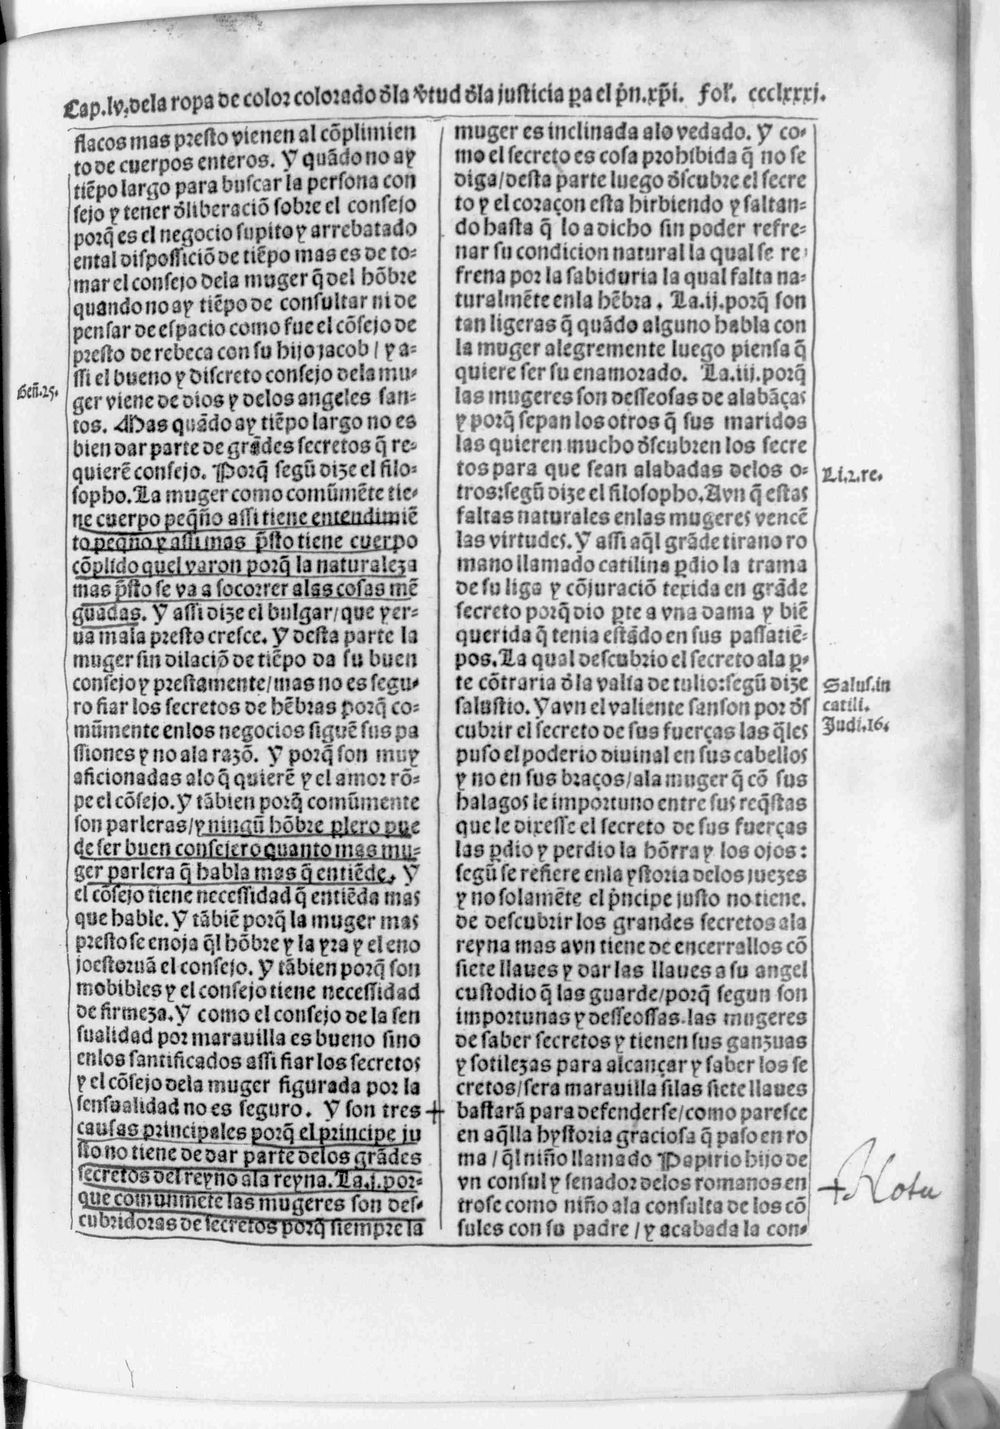 Cap.lv.dela ropa de color colorado ð̄la v̄tud ð̄la justicia pa el pn̄.xp̄i. fol. ccclxxxj.
flacos mas presto vienen al cõplimien
to de cuerpos enteros. Y quãdo no ay
tiẽpo largo para buscar la persona con
sejo y tener ð̄liberaciõ sobre el consejo
porq̃ es el negocio supito y arrebatado
ental dispossiciõ de tiẽpo mas es de to-
mar el consejo dela muger q̃ del hõbre
quando no ay tiẽpo de consultar ni de
pensar de espacio como fue el cõsejo de
presto de rebeca con su hijo jacob / y a-
ssi el bueno y discreto consejo dela mu-
Gen̄.25.
ger viene de dios y delos angeles san-
tos. Mas quãdo ay tiẽpo largo no es
bien dar parte de grãdes secretos q̃ re-
quierẽ consejo. Porq̃ segũ dize el filo-
sopho. La muger como comũmẽte tie-
ne cuerpo peq̃ño assi tiene entendimiẽ
to peq̃ño y assi mas p̃sto tiene cuerpo
cõplido quel varon porq̃ la naturaleza
mas p̃sto se va a socorrer alas cosas mẽ
guadas. Y assi dize el bulgar / que yer-
ua mala presto cresce. Y desta parte la
muger sin dilaciõ de tiẽpo da su buen
consejo y prestamente / mas no es segu-
ro fiar los secretos de hẽbras porq̃ co-
mũmente enlos negocios siguẽ sus pa
ssiones y no ala razõ. Y porq̃ son muy
aficionadas alo q̃ quierẽ y el amor rõ-
pe el cõsejo. Y tãbien porq̃ comũmente
son parleras / y ningũ hõbre plero pue
de ser buen consejero quanto mas mu-
ger parlera q̃ habla mas q̃ entiẽde. Y
el cõsejo tiene necessidad q̃ entiẽda mas
que hable. Y tãbiẽ porq̃ la muger mas
presto se enoja q̃l hõbre y la yra y el eno
jo estoruã el consejo. Y tãbien porq̃ son
mobibles y el consejo tiene necessidad
de firmeza. Y como el consejo de la sen
sualidad por marauilla es bueno sino
enlos santificados assi fiar los secretos
y el cõsejo dela muger figurada por la
sensualidad no es seguro. Y son tres +
causas principales porq̃ el principe ju
sto no tiene de dar parte delos grãdes
secretos del reyno ala reyna. La.j.por-
que comunmẽte las mugeres son des-
cubridoras de secretos porq̃ siempre la
muger es inclinada alo vedado. Y co-
mo el secreto es cosa prohibida q̃ no se
diga / desta parte luego ð̄scubre el secre
to y el coraçon esta hirbiendo y saltan-
do hasta q̃ lo a dicho sin poder refre-
nar su condicion natural la qual se re-
frena por la sabiduria la qual falta na-
turalmẽte enla hẽbra. La.ij.porq̃ son
tan ligeras q̃ quãdo alguno habla con
la muger alegremente luego piensa q̃
quiere ser su enamorado. La.iij.porq̃
las mugeres son desseosas de alabãças
y porq̃ sepan los otros q̃ sus maridos
las quieren mucho ð̄scubren los secre
tos para que sean alabadas delos o-
Li.2.re.
tros: segũ dize el filosopho. Avn q̃ estas
faltas naturales enlas mugeres vencẽ
las virtudes. Y assi aq̃l grãde tirano ro
mano llamado catilina p̱dio la trama
de su liga y cõjuraciõ texida en grãde
secreto porq̃ dio p̱te a vna dama y biẽ
querida q̃ tenia estãdo en sus passatiẽ-
pos. La qual descubrio el secreto ala p̱-
te cõtraria ð̄la valia de tulio: segũ dize
Salus.in
catili.
salustio. Y avn el valiente sanson por ð̄s
Judi.16.
cubrir el secreto de sus fuerças las q̃les
puso el poderio diuinal en sus cabellos
y no en sus braços / ala muger q̃ cõ sus
halagos le importuno entre sus req̃stas
que le dixesse el secreto de sus fuerças
las p̱dio y perdio la hõrra y los ojos:
segũ se refiere enla ystoria delos juezes
y no solamẽte el p̃ncipe justo no tiene.
de descubrir los grandes secretos ala
reyna mas avn tiene de encerrallos cõ
siete llaues y dar las llaues a su angel
custodio q̃ las guarde / porq̃ segun son
importunas y desseossas las mugeres
de saber secretos y tienen sus ganzuas
y sotilezas para alcançar y saber los se
cretos / sera marauilla si las siete llaues
bastarã para defenderse / como paresce
en aq̃lla hystoria graciosa q̃ paso en ro
ma / q̃l niño llamado Papirio hijo de
vn consul y senador delos romanos en
+ Nota
trose como niño ala consulta de los cõ
sules con su padre / y acabada la con-